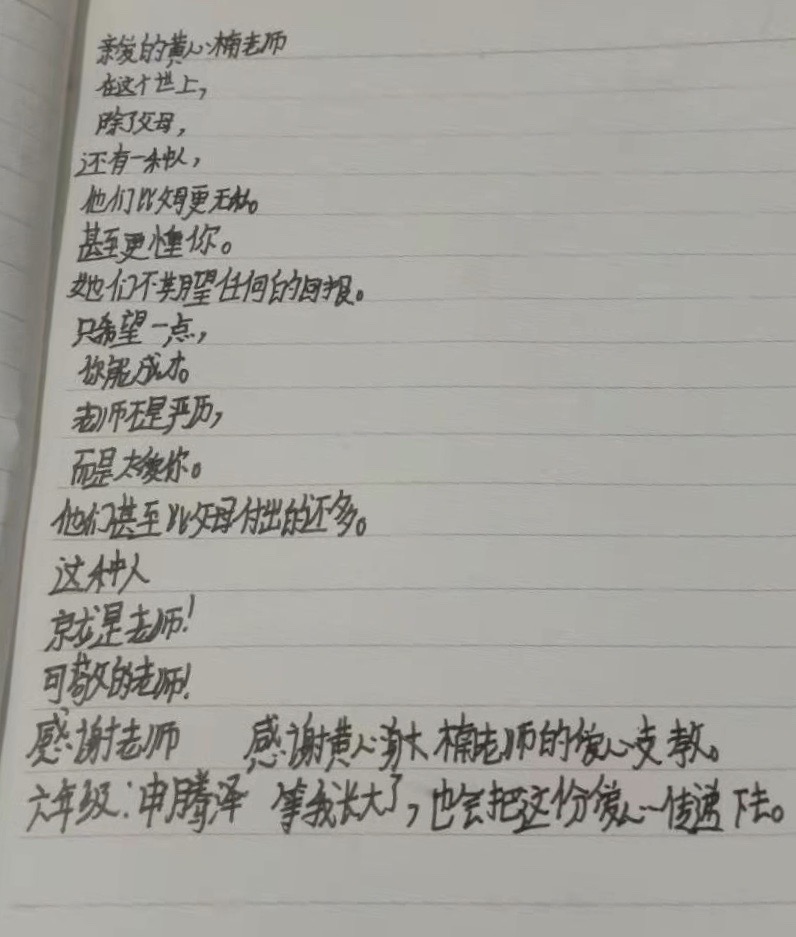 亲爱的黄心楠老师
在这个世上，
除了父母，
还有一种人，
他们比父母更无私。
甚至更懂你。
她们不期望任何的回报。
只希望一点，
你能成才。
老师不是严历，
而是太爱你。
他们甚至比父母付出的还多。
这种人
就是老师！
可敬的老师！
感谢老师 感谢黄心楠老师的爱心支教。
六年级：申腾泽 等我长大了，也会把这份爱心传递下去。